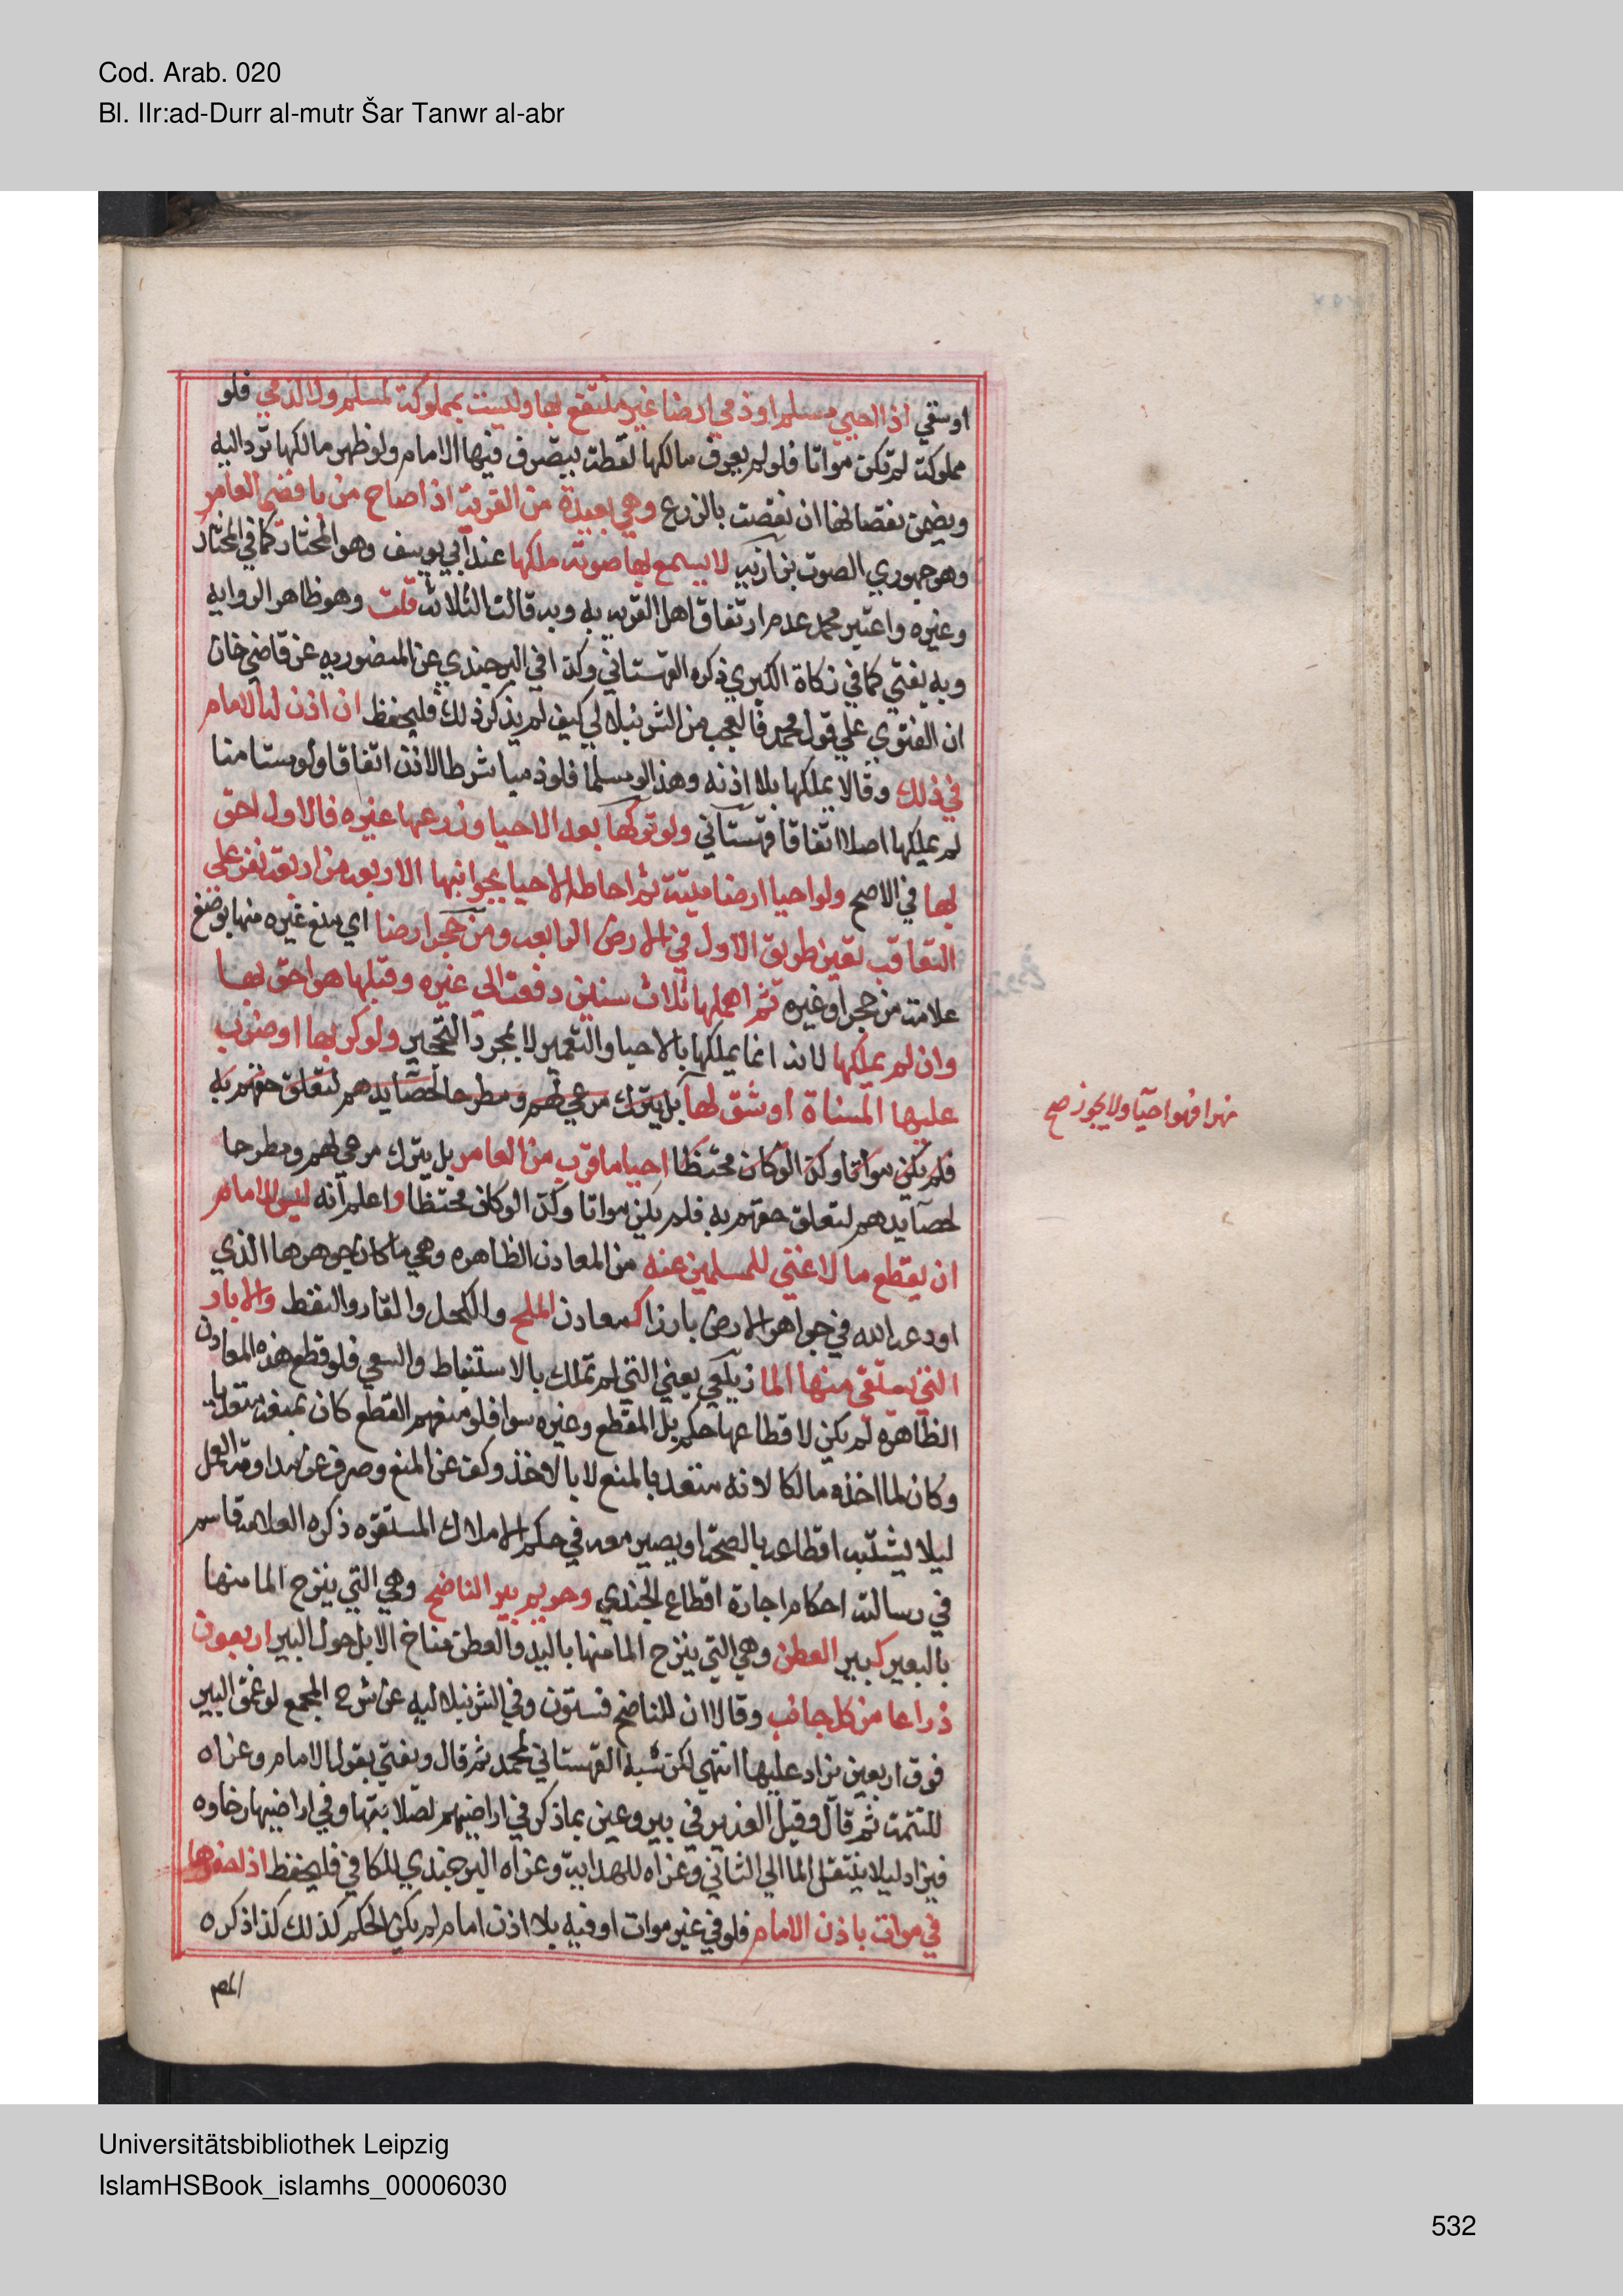 Cod. Arab. 020
Bl. IIr:ad-Durr al-mutr Šar Tanwr al-abr
اوسقي اذا احيي مسلم او ذمي ارضا غير منتفع بها وليست بمملوكة لمسلم ولا لذمي فلو
مملوكة لم تكن مواتا فلو لم يعرف مالكها لقطة يتصرف فيها الامام ولو ظهر مالكها ترد اليه
ويضمن نقصانها ان نقصت بالزرع وهي بعيدة من القرية اذا صاح من باقصي العامر
وهو جهوري الصوت بزازيه لا يسمع بها صوته ملكها عند ابي يوسف وهو المختار كما في المختار
وغيره واعتبر محمد عدم ارتفاق اهل القريه به وبه قالت الثلاثة قلت وهو ظاهر الروايه
وبه يفتي كما في زكاة الكبري ذكره القهستاني وكذا في البرجندي عن المنصوريه عن قاضي خان
ان الفتوي علي قول محمد فالعجب من الشرنبلالي كيف لم يذكر ذلك فليحفظ ان اذن له الامام
في ذلك وقالا يملكها بلا اذنه وهذا لو مسلما فلو ذميا شرط الاذن اتفاقا ولو مستامنا
لم يملكها اصلا اتفاقا قهستاني ولو تركها بعد الاحيا وزرعها غيره فالاول احق
بها في الاصح ولو احيا ارضا ميتة ثم احاط الاحيا بجوانبها الاربعه من اربعة نفر علي
التعاقب تعين طريق الاول في الارض الرابعه ومن حجر ارضا اي منع غيره منها بوضع
علامة من حجر او غيره ثم اهملها ثلاث سنين دفعت الي غيره وقبلها هو احق بها
وان لم يملكها لانه انما يملكها بالاحيا والتعمير لا بمجرد التحجير ولو كربها او ضرب
عليها المسناة او شق لها بل يترك مرعي لهم ومطرحا لحصايدهم لتعلق حقهم به
نهرا فهو احيآ ولا يجوز صح
فلم يكن مواتا وكذا لو كان محتظا احيا ما قرب من العامر بل يترك مرعي لهم ومطرحا
لحصآيدهم لتعلق حقهم به فلم يكن مواتا وكذا لو كان محتظا واعلم انه ليس للامام
ان يقطع ما لا غني للمسلمين عنه من المعادن الظاهره وهي ما كان جوهرها الذي
اودعه الله في جواهر الارض بارزا كمعادن الملح والكحل والقار والنفط والابار
التي يستقي منها الما زيلعي يعني التي لم تملك بالاستنباط والسعي فلو قطع هذه المعادن
الظاهره لم يكن لاقطاعها حكم بل المقطع وغيره سوا فلو منعهم القطع كان بمنعه متعديا
وكان لما اخذه مالكا لانه متعد بالمنع لا بالاخذ وكف عن المنع وصرف عن مداومة العمل
ليلا يشتبه اقطاعه بالصحة او يصير معه في حكم الاملاك المستقره ذكره العلامة قاسم
في رسالته احكام اجارة اقطاع الجندي وحريم بير الناضح وهي التي ينزح الما منها
بالبعير كبير العطن وهي التي ينزح الما منها باليد والعطن مناخ الابل حول البير اربعون
ذراعا من كل جانب وقالا ان للناضح فستون وفي الشرنبلاليه عن شرح المجمع لو عمق البير
فوق اربعين يزاد عليها انتهي لكن نسبه القهستاني لمحمد ثم قال ويفتي بقول الامام وعزاه
للتتمة ثم قال وقيل التقدير في بير وعين بما ذكر في اراضيهم لصلابتها وفي اراضيها رخاوه
فيزاد ليلا ينتقل الما الي الثاني وعزاه للهداية وعزاه البرجندي للكافي فليحفظ اذا حفرها
في موات باذن الامام فلو في غير موات او فيه بلا اذن امام لم يكن الحكم كذلك كذا ذكره
المص
Universitätsbibliothek Leipzig
IslamHSBook_islamhs_00006030
532